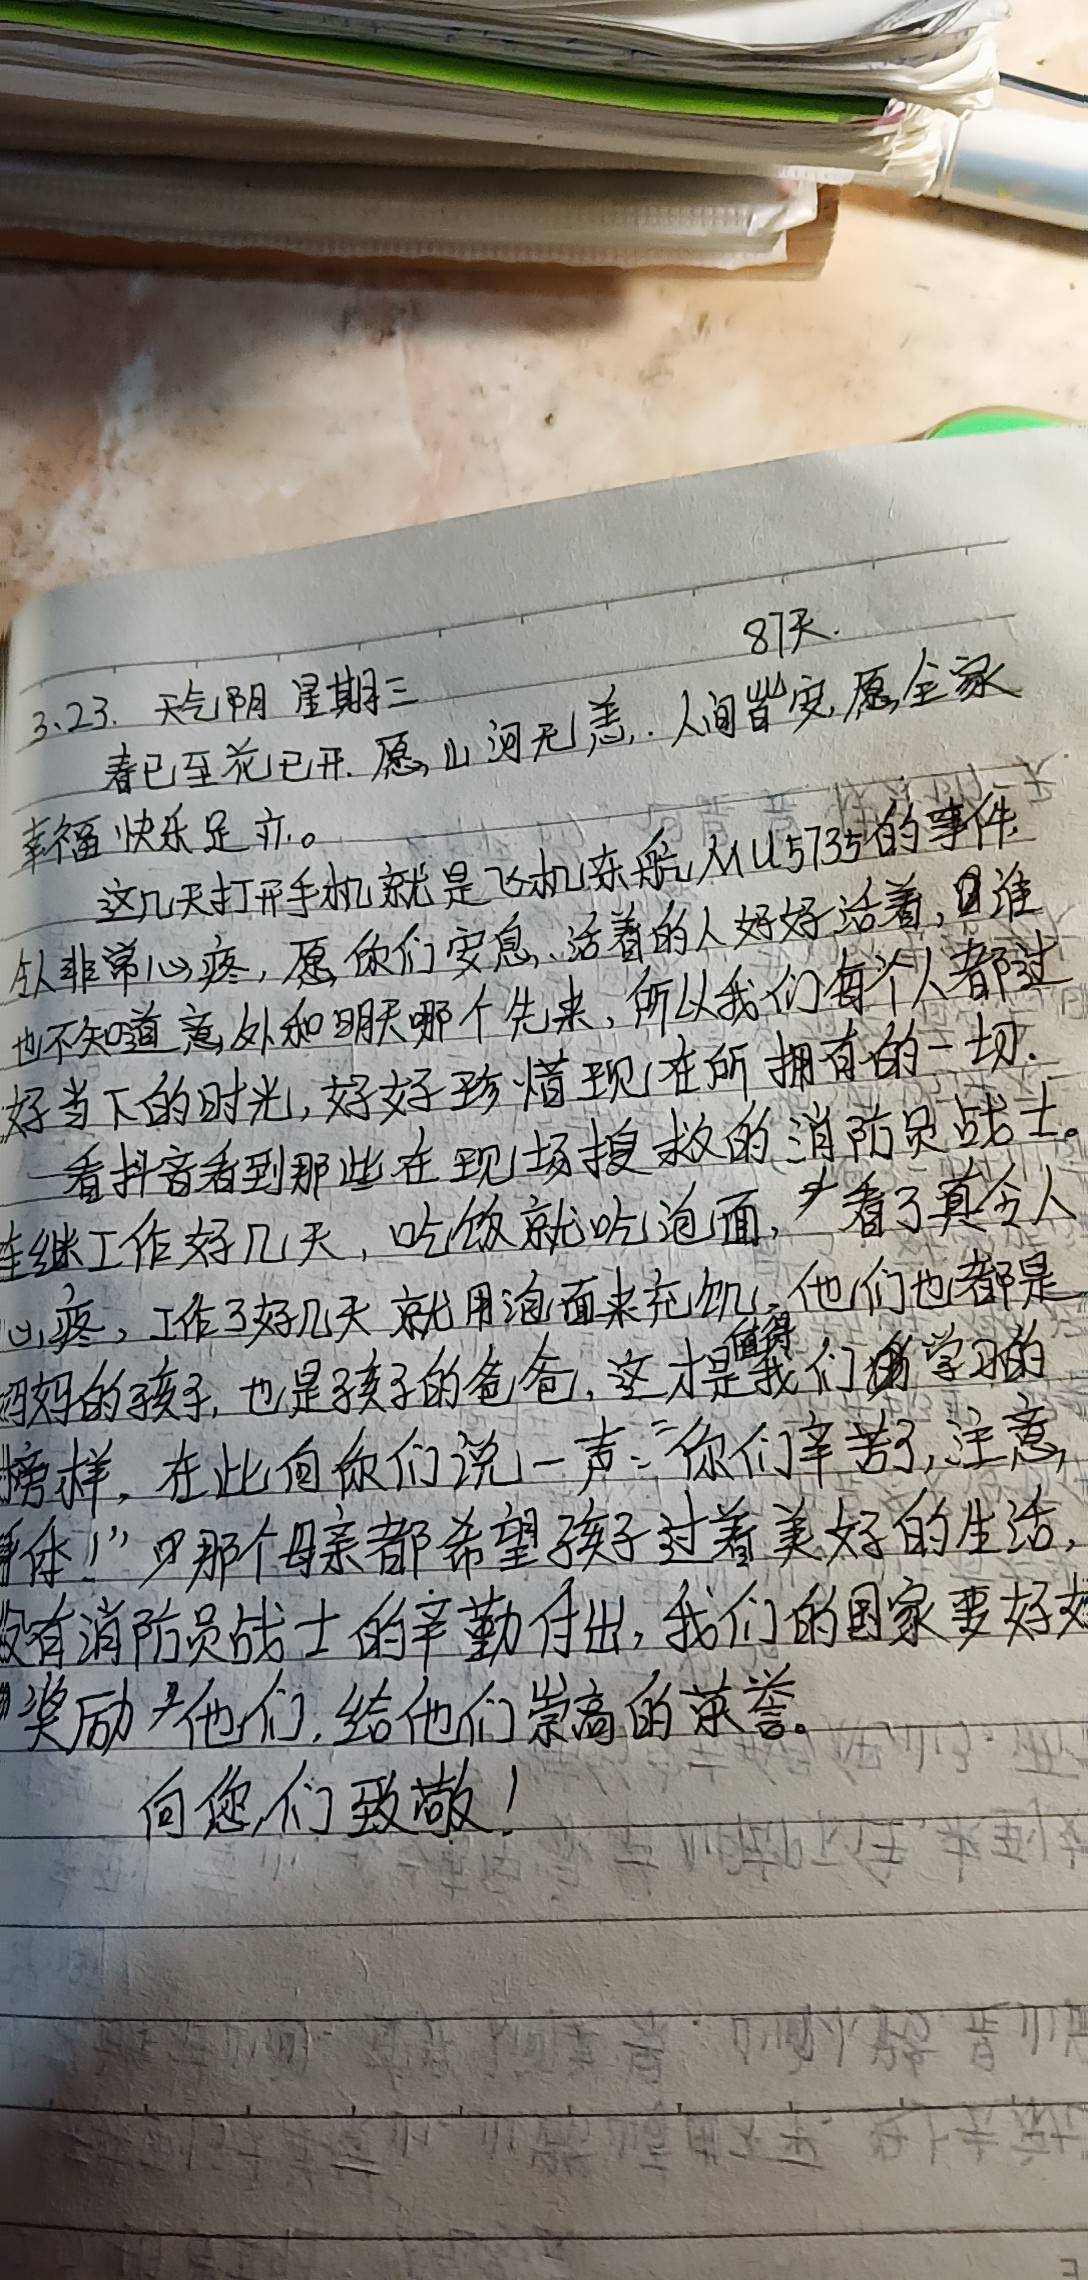 87天.
3.23. 天气阴 星期三
春已至花已开.愿山河无恙.人间皆安,愿全家
幸福快乐足亦。
这几天打开手机就是飞机东航MU5735的事件,
非常心疼,愿你们安息、活着的人好好活着,谁
也不知道意外和明天哪个先来,所以我们每个人都过
好当下的时光,好好珍惜现在所拥有的一切.
一看抖音看到那些在现场搜救的消防员战士。
连继工作好几天,吃饭就吃泡面,看了真令人
心疼,工作了好几天就用泡面来充饥,他们也都是
妈妈的孩子,也是孩子的爸爸,这才是值得我们学习的
榜样,在此向你们说一声:“你们辛苦了,注意
身体!”那个母亲都希望孩子过着美好的生活,
没有消防员战士的辛勤付出,我们的国家要好好
奖励他们,给他们崇高的荣誉。
向您们致敬!